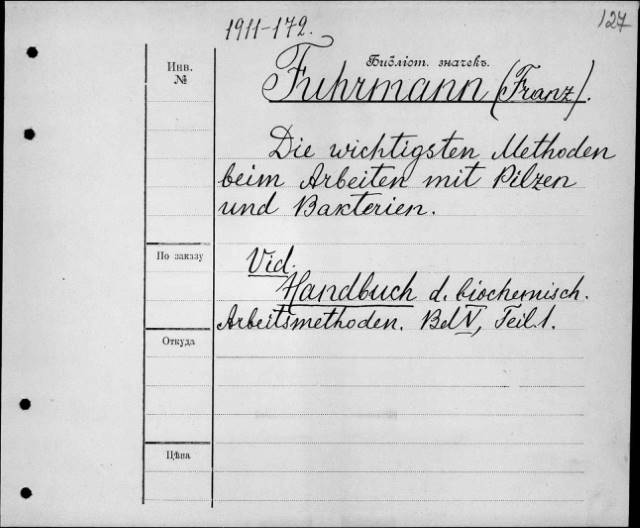 127
1911-172.
Инв.
№
Библіст. значекъ.
Fuhrmann (Franz).
Die wichtigsten Methoden
beim Arbeiten mit Pilzen
und Bakterien.
По заказу
Vid.
Handbuch d. biochemisch.
Arbeitsmethoden. Bd V, Teil. 1.
Откуда
Цѣна